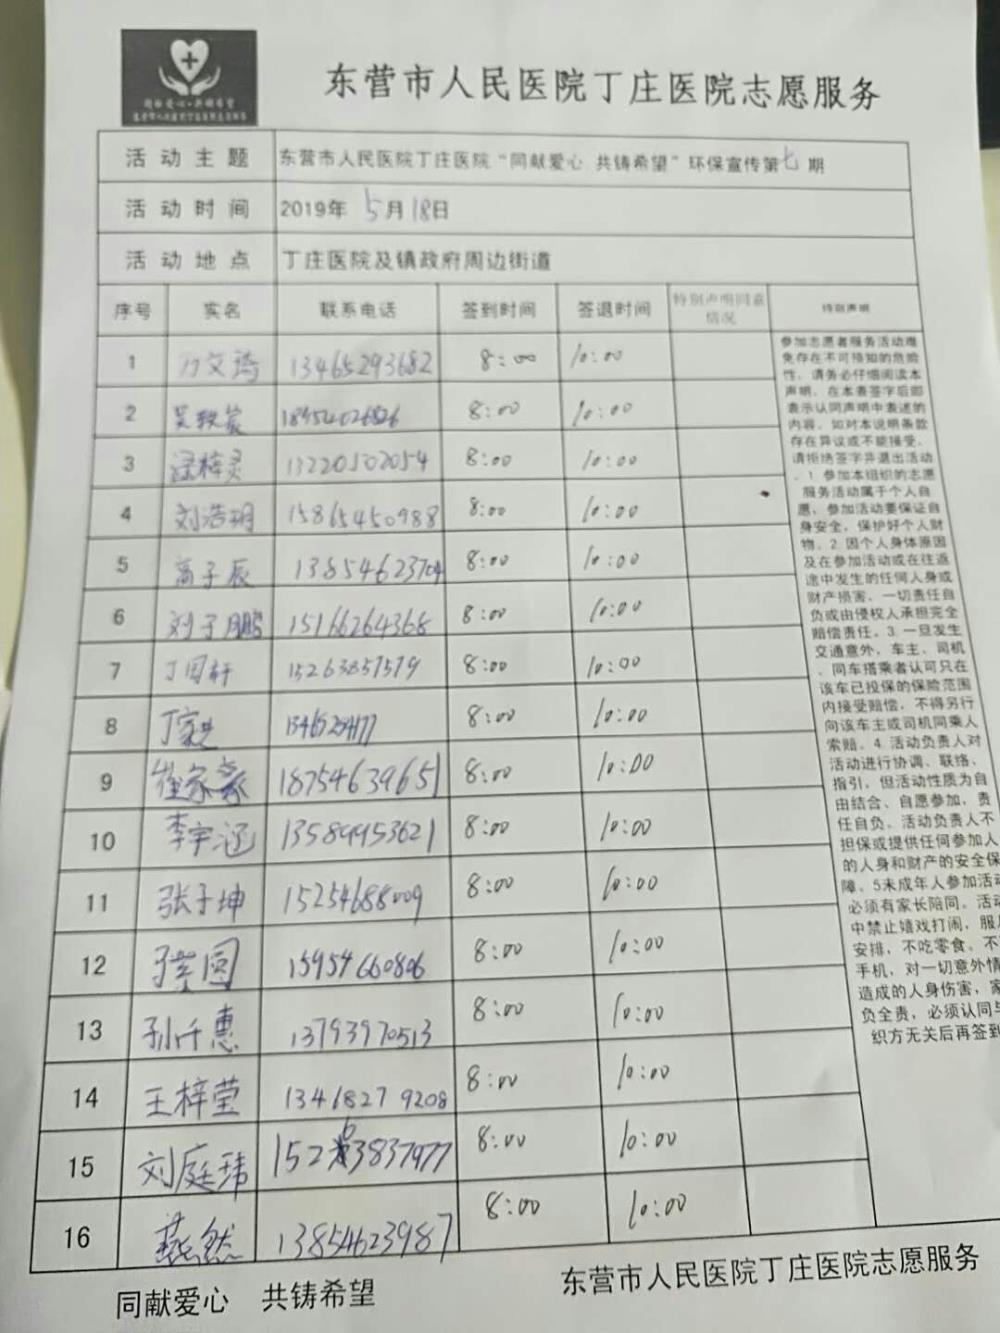 同献爱心·共铸希望
东营市人民医院丁庄医院志愿服务
活动主题 东营市人民医院丁庄医院“同献爱心 共铸希望”环保宣传第七期
活动时间 2019年 5月18日
活动地点 丁庄医院及镇政府周边街道
序号 实名 联系电话 签到时间 签退时间 特别声明同意情况 特别声明
1 13465293682 8:00 10:00
2 18954026826 8:00 10:00
3 13220502054 8:00 10:00
4 刘浩玥 15865450988 8:00 10:00
5 高子辰 13854623704 8:00 10:00
6 刘子鹏 15166264368 8:00 10:00
7 15263857579 8:00 10:00
8 8:00 10:00
9 崔家豪 18754639651 8:00 10:00
10 李宇涵 13589953621 8:00 10:00
11 张子坤 15254688009 8:00 10:00
12 15954660806 8:00 10:00
13 孙千惠 13793970513 8:00 10:00
14 王梓莹 13468279208 8:00 10:00
15 刘庭玮 15263837977 8:00 10:00
16 燕然 13854623987 8:00 10:00
参加志愿者服务活动难
免存在不可预知的危险
性，请务必仔细阅读本
声明，在本表签字后即
表示认同声明中表述的
内容，如对本说明条款
存在异议或不能接受，
请拒绝签字并退出活动
。1 参加本组织的志愿
服务活动属于个人自
愿，参加活动要保证自
身安全，保护好个人财
物。2.因个人身体原因
及在参加活动或在往返
途中发生的任何人身或
财产损害，一切责任自
负或由侵权人承担完全
赔偿责任。3.一旦发生
交通意外，车主、司机
、同车搭乘者认可只在
该车已投保的保险范围
内接受赔偿，不得另行
向该车主或司机同乘人
索赔。4.活动负责人对
活动进行协调、联络、
指引，但活动性质为自
由结合、自愿参加，责
任自负。活动负责人不
担保或提供任何参加人
的人身和财产的安全保
障。5未成年人参加活动
必须有家长陪同。活动
中禁止嬉戏打闹，服
安排，不吃零食。不
手机，对一切意外情
造成的人身伤害，家
负全责，必须认同与
织方无关后再签到
同献爱心 共铸希望
东营市人民医院丁庄医院志愿服务